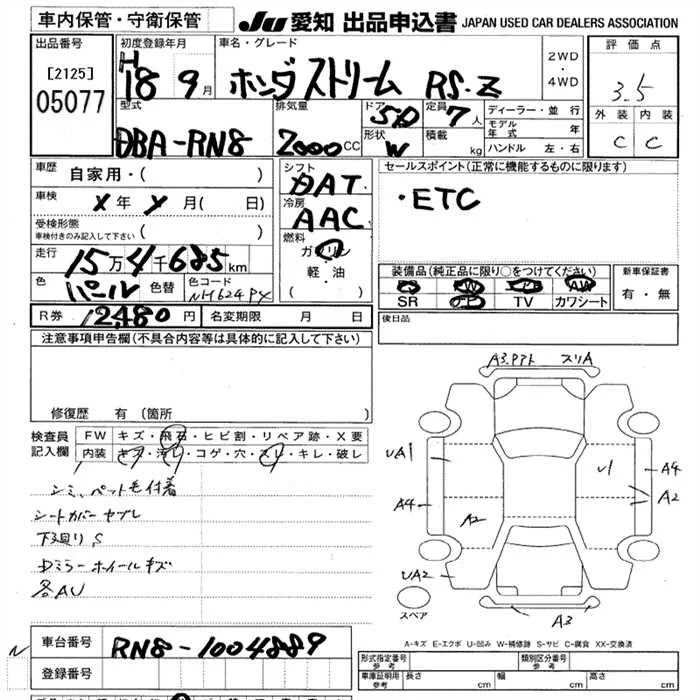 車内保管・守衛保管
Ju 愛知 出品申込書 JAPAN USED CAR DEALERS ASSOCIATION
出品番号
[2125]
05077
初度登録年月
H
18 9月
車名・グレード
ホンダ ストリーム RS.Z
2WD
・
4WD
評価点
3.5
外装 内装
C C
型式
DBA-RN8
排気量
2000CC
ドア 5D
形状 W
定員 7人
積載 kg
ディーラー・並行
モデル年式 年
ハンドル 左・右
車歴 自家用・( )
車検 X年 月( 日)
受検形態
車検付きのみ記入して下さい ( )
走行 15万4千685km
色 パール 色替 色コード NH624PX
シフト
DAT
冷房
AAC
燃料
ガソリン
軽・油
( )
セールスポイント(正常に機能するものに限ります)
・ETC
装備品(純正品に限り○をつけてください)
AW
SR TV カワシート
新車保証書
有・無
R券 12480円 名変期限 月 日
後日品
注意事項申告欄(不具合内容等は具体的に記入して下さい)
修復歴 有(箇所
検査員記入欄
FW キズ・飛石・ヒビ割・リペア跡・X要
内装 キズ・汚レ・コゲ・穴・スレ・キレ・破レ
シミ、ペット毛付着
シートカバー ヤブレ
下廻り S
Dミラー ホイールキズ
各AU
A3.Pアト スリA
UA1
A4
A2
U1
A4
A2
UA2
A3
スペア
A-キズ E-エクボ U-凹み W-補修跡 S-サビ C-腐食 XX-交換済
車台番号 RN8-1004889
登録番号
形式指定番号 参考
類別区分番号 参考
車庫証明用 参考 長さ cm 幅 cm 高さ cm